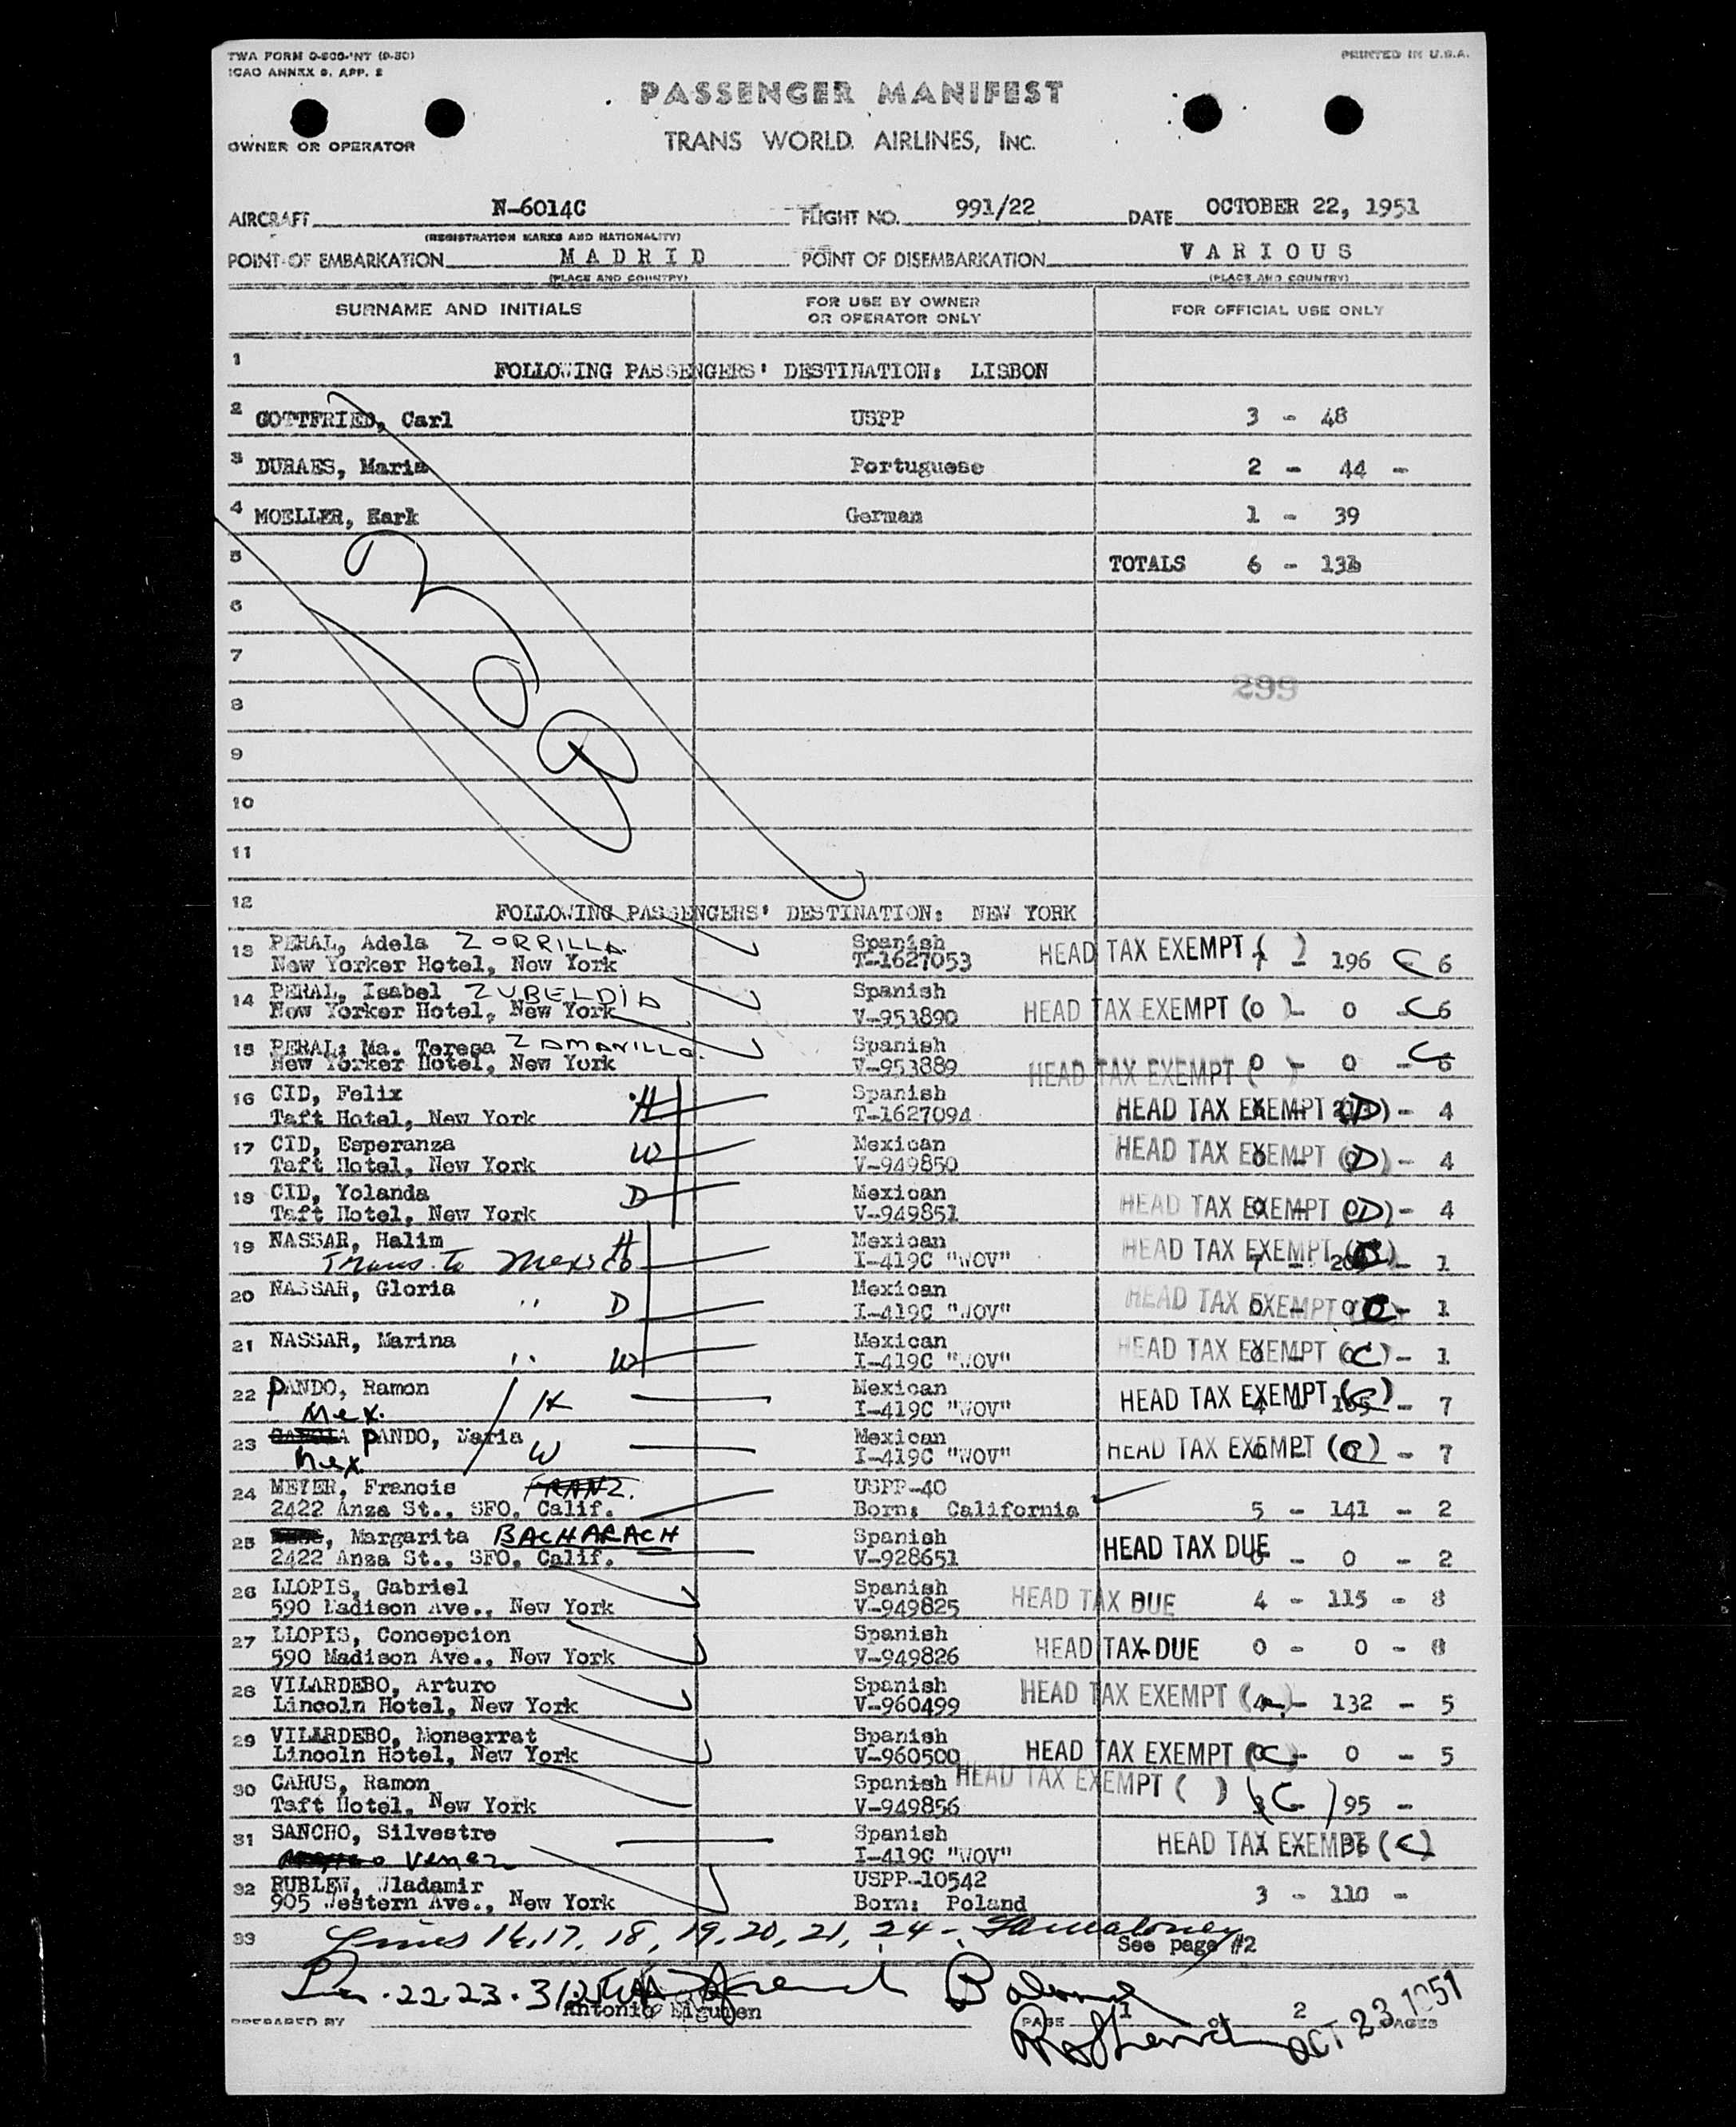 TWA FORM O-800-INT (9-50)
ICAO ANNEX 9, APP. 2
PRINTED IN U.S.A.
PASSENGER MANIFEST
OWNER OR OPERATOR
TRANS WORLD AIRLINES, INC.
AIRCRAFT N-6014C FLIGHT NO. 991/22 DATE OCTOBER 22, 1951
(REGISTRATION MARKS AND NATIONALITY)
POINT OF EMBARKATION MADRID POINT OF DISEMBARKATION VARIOUS
(PLACE AND COUNTRY) (PLACE AND COUNTRY)
SURNAME AND INITIALS FOR USE BY OWNER OR OPERATOR ONLY FOR OFFICIAL USE ONLY
1 FOLLOWING PASSENGERS' DESTINATION: LISBON
2 GOTTFRIED, Carl USPP 3 - 48
3 DURAES, Maria Portuguese 2 - 44 -
4 MOELLER, Hark German 1 - 39
5 TOTALS 6 - 131
6
7
8 299
9
10
11
308
12 FOLLOWING PASSENGERS' DESTINATION: NEW YORK
13 PERAL, Adela ZORRILLA Spanish
New Yorker Hotel, New York T-1627053 HEAD TAX EXEMPT ( ) - 196 C 6
14 PERAL, Isabel ZUBELDIA Spanish
New Yorker Hotel, New York V-953890 HEAD TAX EXEMPT (0 ) - 0 - C6
15 PERAL, Ma. Teresa ZAMANILLO. Spanish
New Yorker Hotel, New York V-953889 HEAD TAX EXEMPT ( ) 0 - 0 - C 6
16 CID, Felix H Spanish
Taft Hotel, New York T-1627094 HEAD TAX EXEMPT (D) - 4
17 CID, Esperanza W Mexican
Taft Hotel, New York V-949850 HEAD TAX EXEMPT (D) - 4
18 CID, Yolanda D Mexican
Taft Hotel, New York V-949851 HEAD TAX EXEMPT (D) - 4
19 NASSAR, Halim H Mexican
Trans. to Mexico I-419C "WOV" HEAD TAX EXEMPT (C) - 1
20 NASSAR, Gloria Mexican
" D I-419C "WOV" HEAD TAX EXEMPT (C) - 1
21 NASSAR, Marina Mexican
" W I-419C "WOV" HEAD TAX EXEMPT (C) - 1
22 PANDO, Ramon H Mexican
Mex. I-419C "WOV" HEAD TAX EXEMPT (C) - 7
23 PANDO, Maria W Mexican
Mex. I-419C "WOV" HEAD TAX EXEMPT (C) - 7
24 MEYER, Francis FRANZ. USPP-40
2422 Anza St., SFO, Calif. Born: California 5 - 141 - 2
25 , Margarita BACHARACH Spanish
2422 Anza St., SFO, Calif. V-928651 HEAD TAX DUE 0 - 0 - 2
26 LLOPIS, Gabriel Spanish
590 Madison Ave., New York V-949825 HEAD TAX DUE 4 - 115 - 8
27 LLOPIS, Concepcion Spanish
590 Madison Ave., New York V-949826 HEAD TAX DUE 0 - 0 - 8
28 VILARDEBO, Arturo Spanish
Lincoln Hotel, New York V-960499 HEAD TAX EXEMPT ( ) - 132 - 5
29 VILARDEBO, Monserrat Spanish
Lincoln Hotel, New York V-960500 HEAD TAX EXEMPT (C) - 0 - 5
30 CARUS, Ramon Spanish HEAD TAX EXEMPT ( )
Taft Hotel, New York V-949856 3 - (C) 95 -
31 SANCHO, Silvestre Spanish
Venez I-419C "WOV" HEAD TAX EXEMPT (C)
32 RUBLEW, Wladamir USPP-10542
905 Western Ave., New York Born: Poland 3 - 110 -
33 Lines 16, 17, 18, 19, 20, 21, 24 -
See page #2
22.23.31
Antonio
PREPARED BY PAGE 1 OF 2 PAGES
OCT 23 1951